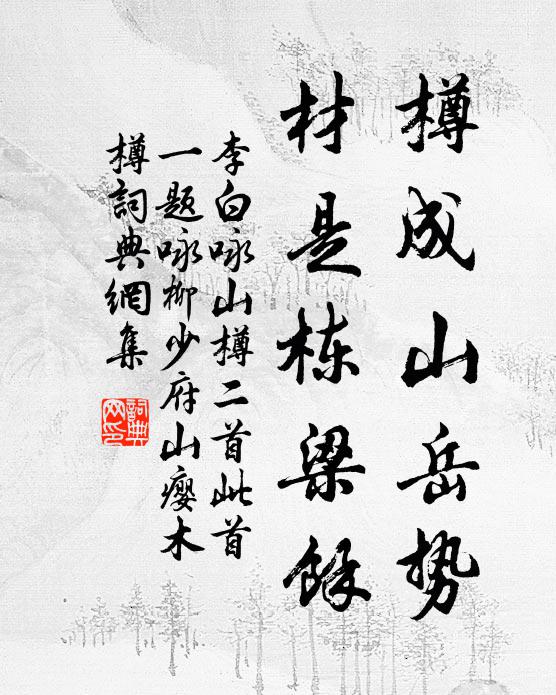 樽成山岳势
材是栋梁餘
李白咏山樽二首此首
一题咏柳少府山瘿木
樽詞典網集
詞典網印